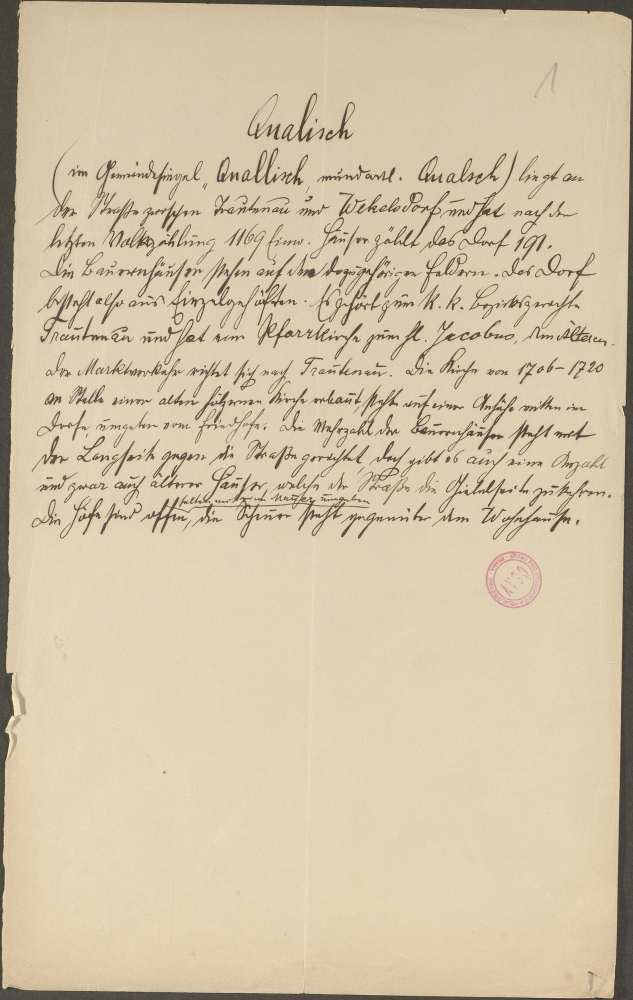 1
Qualisch
(im Gemeindesiegel „Quallisch, mundartl. Qualsch) liegt an
der Straße zwischen Trautenau und Wekelsdorf und hat nach der
letzten Volkszählung 1169 Einw. Häuser zählt das Dorf 191.
Die Bauernhäuser stehen auf den dazugehörigen Feldern. Das Dorf
besteht also aus Einzelgehöften. Es gehört zum k. k. Bezirksgerichte
Trautenau und hat eine Pfarrkirche zum hl. Jacobus, dem Älteren.
Der Marktverkehr richtet sich nach Trautenau. Die Kirche von 1706–1720
an Stelle einer alten hölzernen Kirche erbaut, steht auf einer Anhöhe mitten im
Dorfe umgeben vom Friedhofe. Die Mehrzahl der Bauernhäuser steht mit
der Langseite gegen die Straße gerichtet, doch gibt es auch eine Anzahl
und zwar auch älterer Häuser, welche der Straße die Giebelseite zukehren.
selten mit einer Mauer umgeben
Die Höfe sind offen, die Scheuer steht gegenüber dem Wohnhause.